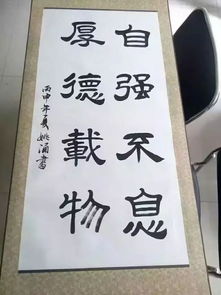 自强不息
厚德載物
丙申年夏 姚涌書